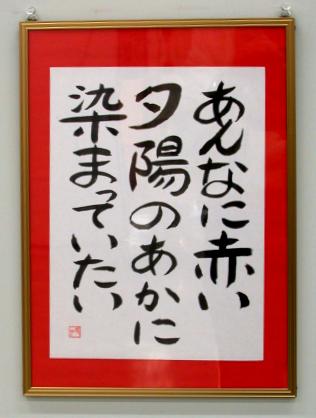 あんなに赤い
夕陽のあかに
染まっていたい